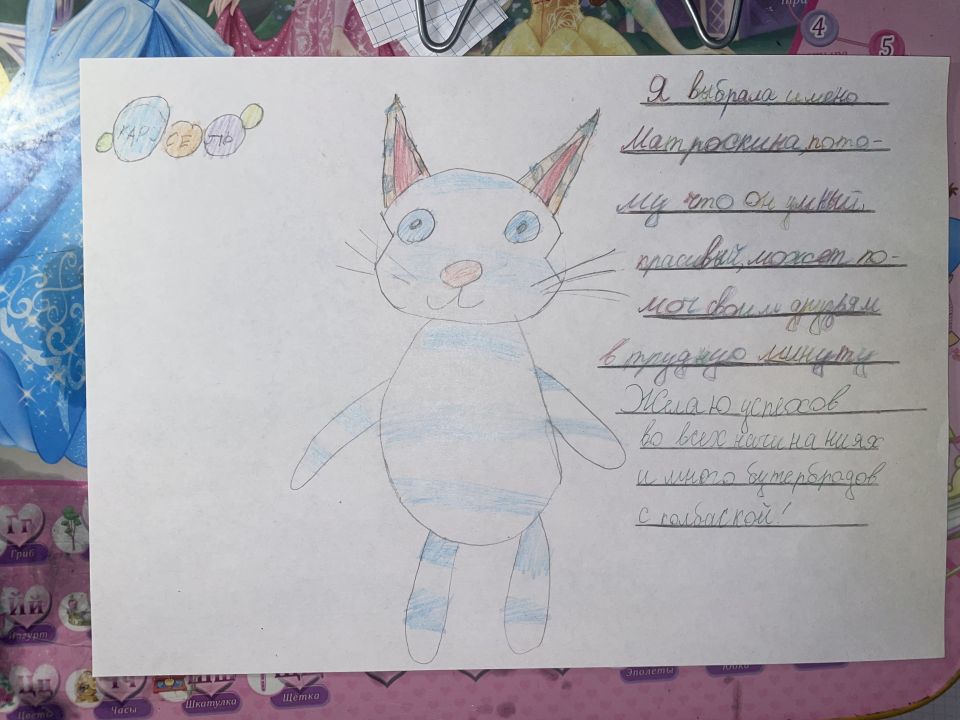 КАРУСЕЛЬ
Я выбрала имено
Матроскина, пото-
му что он умный,
красивый, может по-
моч своим друзьям
в трудную минуту
Желаю успехов
во всех начинаниях
и много бутербродов
с колбаской!
4
5
Гг
Гриб
Йй
Йогурт
Цц
Цветы
Часы
Шкатулка
Щётка
Эполеты
Юбка